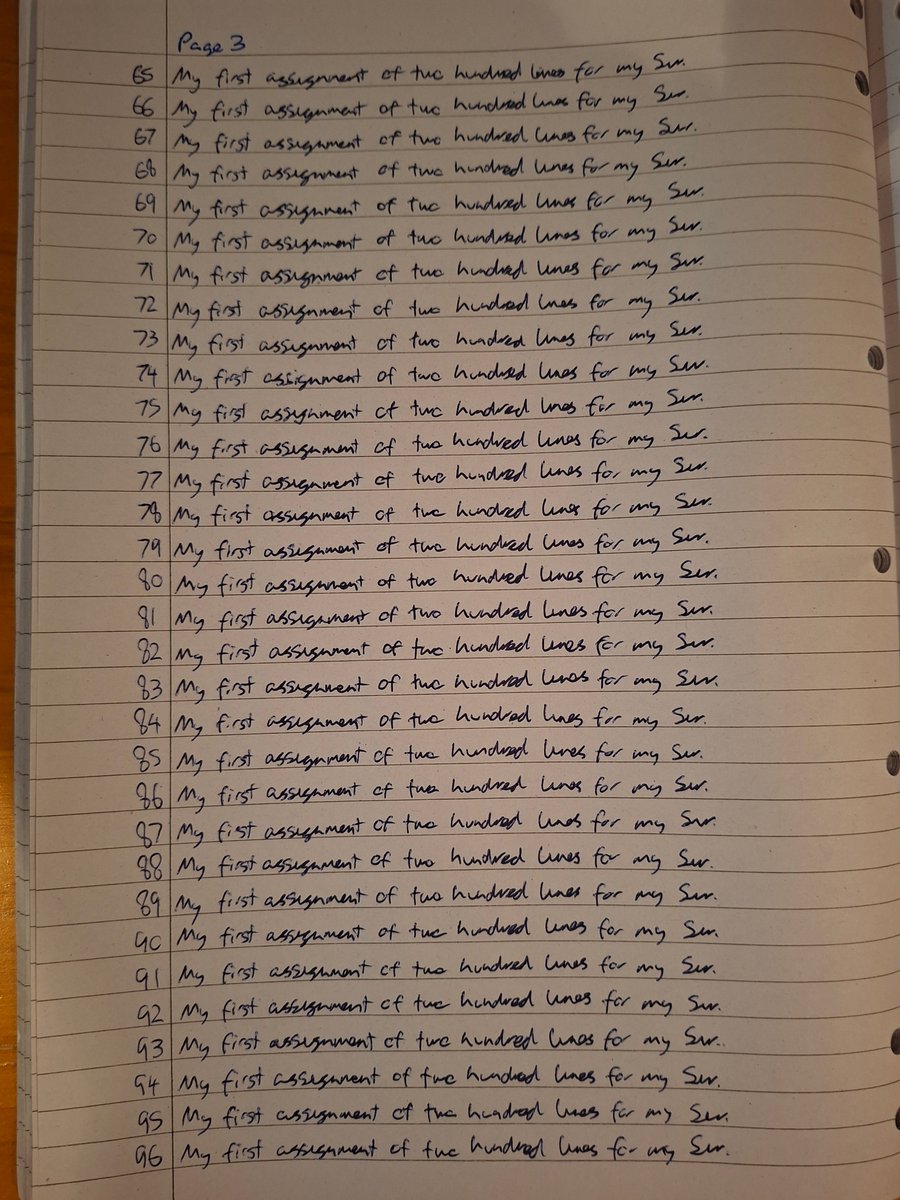 Page 3
65 My first assignment of two hundred lines for my Sir.
66 My first assignment of two hundred lines for my Sir.
67 My first assignment of two hundred lines for my Sir.
68 My first assignment of two hundred lines for my Sir.
69 My first assignment of two hundred lines for my Sir.
70 My first assignment of two hundred lines for my Sir.
71 My first assignment of two hundred lines for my Sir.
72 My first assignment of two hundred lines for my Sir.
73 My first assignment of two hundred lines for my Sir.
74 My first assignment of two hundred lines for my Sir.
75 My first assignment of two hundred lines for my Sir.
76 My first assignment of two hundred lines for my Sir.
77 My first assignment of two hundred lines for my Sir.
78 My first assignment of two hundred lines for my Sir.
79 My first assignment of two hundred lines for my Sir.
80 My first assignment of two hundred lines for my Sir.
81 My first assignment of two hundred lines for my Sir.
82 My first assignment of two hundred lines for my Sir.
83 My first assignment of two hundred lines for my Sir.
84 My first assignment of two hundred lines for my Sir.
85 My first assignment of two hundred lines for my Sir.
86 My first assignment of two hundred lines for my Sir.
87 My first assignment of two hundred lines for my Sir.
88 My first assignment of two hundred lines for my Sir.
89 My first assignment of two hundred lines for my Sir.
90 My first assignment of two hundred lines for my Sir.
91 My first assignment of two hundred lines for my Sir.
92 My first assignment of two hundred lines for my Sir.
93 My first assignment of two hundred lines for my Sir.
94 My first assignment of two hundred lines for my Sir.
95 My first assignment of two hundred lines for my Sir.
96 My first assignment of two hundred lines for my Sir.